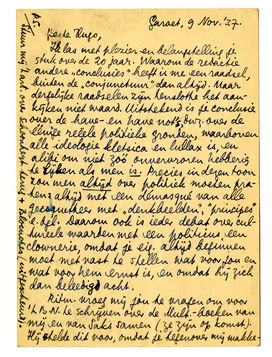 Garoet, 9 Nov. '37.
Beste Hugo,
Ik las met plezier en belangstelling je
stuk over de 20 jaar. Waarom de redactie
andere "conclusies" heeft is me een raadsel,
buiten de "conjunctuur" dan altijd. Maar
dergelijke raadselen zijn tenslotte het aan-
kijken niet waard. Uitstekend is je conclusie
over de have- en have not's, bvz. over de
eenige reëele politieke gronden, waarboven
alle ideologie kletsica en lullax is, en
alibi om niet zoo onverworen hebberig
te lijken als men is. Precies in dezen toon
zou men altijd over politiek moeten pra-
ten altijd met een demasqué van alle
met "denkbeelden", "principes"
e.d. Daarom ook is ieder debat over cul-
tureele waarden met een politicus, een
clownerie, omdat je eig. altijd beginnen
moet met vast te stellen wat voor jou en
wat voor hem ernst is, en omdat hij zich
dan beleedigd acht.
Ritm vroeg mij jou te vragen om voor
't B.N. te schrijven over de Mult.-boeken van
mij en van Saks samen (ze zijn op komst).
Hij stelde dit voor, omdat je tegenover mij makke-
P.S.
Stuur mij s.v.p. ook